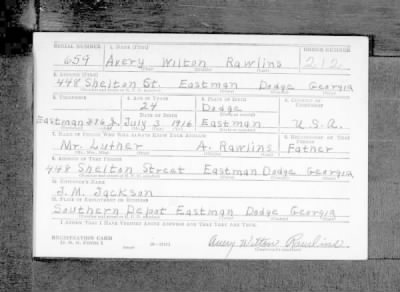 SERIAL NUMBER 1. NAME (Print) ORDER NUMBER
659 Avery Wilton Rawlins 212
(First) (Middle) (Last)
2. ADDRESS (Print)
448 Shelton St. Eastman Dodge Georgia
3. TELEPHONE 4. AGE IN YEARS 5. PLACE OF BIRTH 6. COUNTRY OF CITIZENSHIP
24 Dodge
DATE OF BIRTH
Eastman 376 J. July 3 1916 Eastman U.S.A.
7. NAME OF PERSON WHO WILL ALWAYS KNOW YOUR ADDRESS 8. RELATIONSHIP OF THAT PERSON
Mr. Luther A. Rawlins Father
9. ADDRESS OF THAT PERSON
448 Shelton Street Eastman Dodge Georgia
10. EMPLOYER'S NAME
J. M. Jackson
11. PLACE OF EMPLOYMENT OR BUSINESS
Southern Depot Eastman Dodge Georgia
I AFFIRM THAT I HAVE VERIFIED ABOVE ANSWERS AND THAT THEY ARE TRUE.
REGISTRATION CARD
D. S. S. FORM 1 Avery Wilton Rawlins